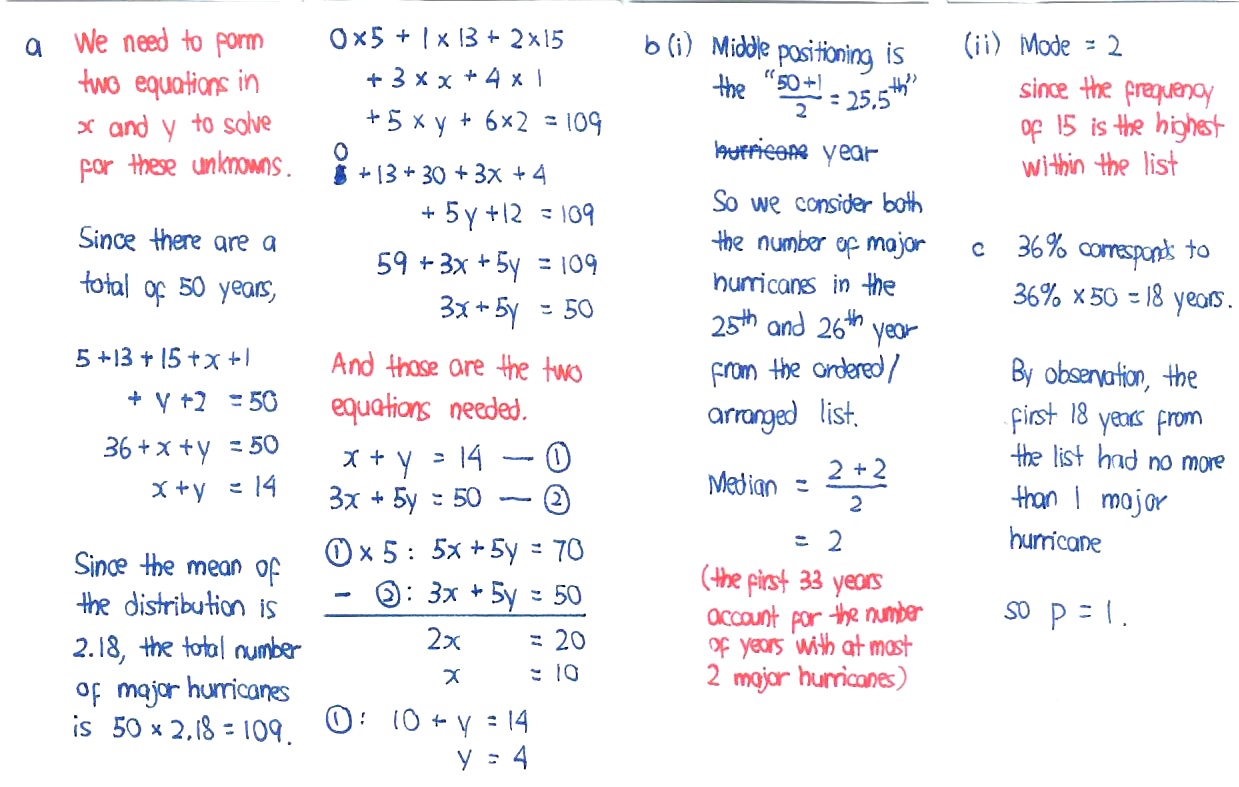 a We need to form
two equations in
x and y to solve
for these unknowns.
Since there are a
total of 50 years,
5 + 13 + 15 + x + 1
+ y + 2 = 50
36 + x + y = 50
x + y = 14
Since the mean of
the distribution is
2.18, the total number
of major hurricanes
is 50 × 2.18 = 109.
0 × 5 + 1 × 13 + 2 × 15
+ 3 × x + 4 × 1
+ 5 × y + 6 × 2 = 109
0 + 13 + 30 + 3x + 4
+ 5y + 12 = 109
59 + 3x + 5y = 109
3x + 5y = 50
And those are the two
equations needed.
x + y = 14 — ①
3x + 5y = 50 — ②
① × 5 : 5x + 5y = 70
- ② : 3x + 5y = 50
2x = 20
x = 10
① : 10 + y = 14
y = 4
b (i) Middle positioning is
the "50+1/2 = 25.5th"
hurricane year
So we consider both
the number of major
hurricanes in the
25th and 26th year
from the ordered/
arranged list.
Median = 2 + 2 / 2
= 2
(the first 33 years
account for the number
of years with at most
2 major hurricanes)
(ii) Mode = 2
since the frequency
of 15 is the highest
within the list
c 36% corresponds to
36% × 50 = 18 years.
By observation, the
first 18 years from
the list had no more
than 1 major
hurricane
so p = 1.